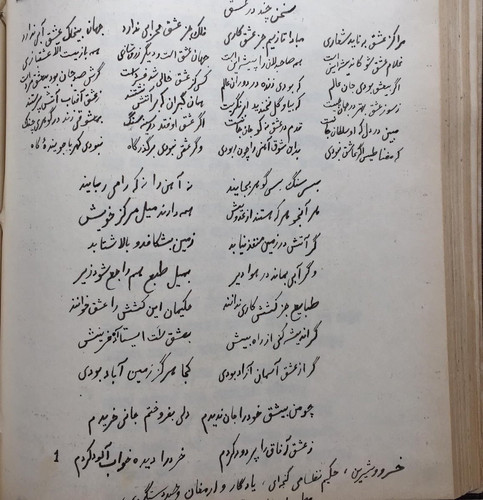 سخنی چند در عشق
مرا کز عشق به ناید شعاری مبادا تا زیم جز عشق کاری فلک جز عشق محرابی ندارد جهان بیخاک عشق آبی ندارد
غلام عشق شو کاندیشه این است همه صاحبدلان را پیشه این است جهان عشق است و دیگر زرق سازی همه بازیست الا عشقبازی
اگر بی عشق بودی جان عالم که بودی زنده در دوران عالم کسی کز عشق خالی شد فسرده است گرش صد جان بود بی عشق مرده است
ز سوز عشق بهتر در جهان چیست که بی او گل نخندید ابر نگریست همان گبران که بر آتش نشستند ز عشق آفتاب آتش پرستند
مبین در دل که او سلطان جانست قدم در عشق نه کو جان جانست اگر عشق اوفتد در سینه سنگ بمعشوقی زند در گوهری چنگ
که مغناطیس اگر عاشق نبودی بدان شوق آهنی را چون ربودی وگر عشقی نبودی بر گذرگاه نبودی کهربا جوینده کاه
بسی سنگ و بسی گوهر بجایند نه آهن را نه که را می ربایند
هر آنجوهر که هستند از عدد بیش همه دارند میل مرکز خویش
گر آتش در زمین منفذ نیابد زمین بشکافد و بالا شتابد
وگر آبی بماند در هوا دیر بمیل طبع هم راجع شود زیر
طبایع جز کشش کاری ندانند حکیمان این کشش را عشق خوانند
گر اندیشه کنی از راه بینش بعشق است ایستاده آفرینش
گر از عشق آسمان آزاد بودی کجا هرگز زمین آباد بودی
چو من بیعشق خود را جان ندیدم دلی بفروختم جانی خریدم
ز عشق آفاق را پر دود کردم خرد را دیده خواب آلود کردم
1 خسرو و شیرین ، حکیم نظامی گنجه ای ، یادگار و ارمغان وحید دستگردی